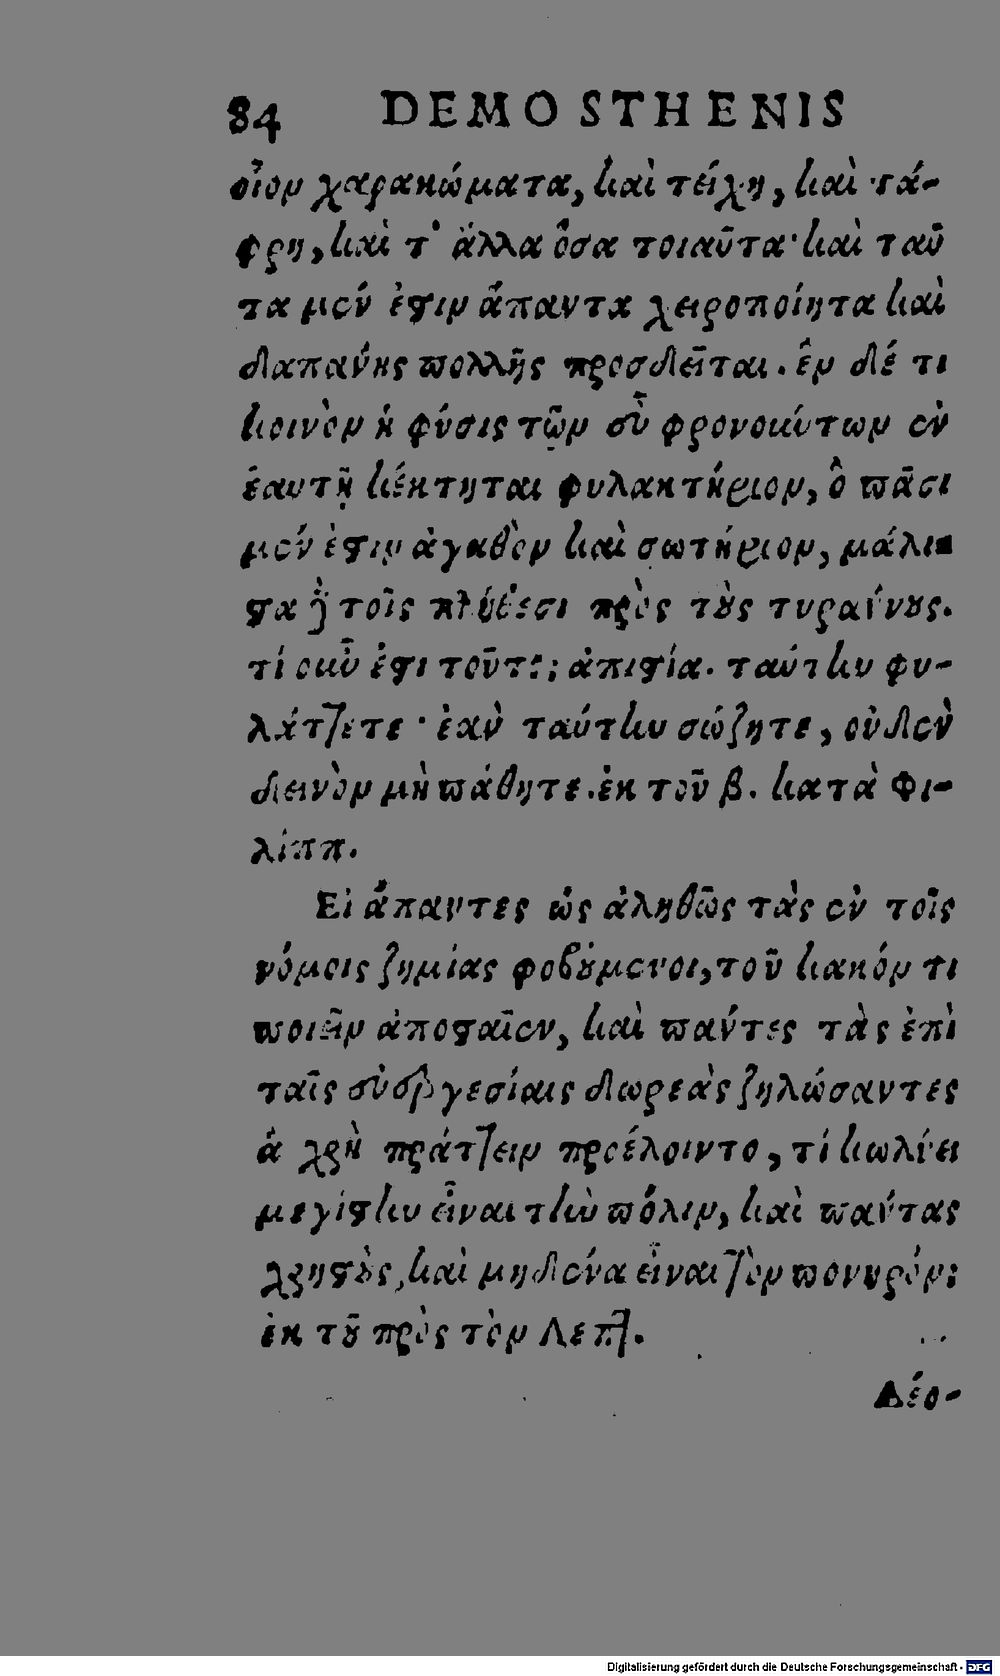 84 DEMOSTHENIS
οἷον χαρακώματα, καὶ τείχη, καὶ τά-
φρη, καὶ τ' ἄλλα ὅσα τοιαῦτα· καὶ ταῦ
τα μέν ἐστιν ἅπαντα χειροποίητα καὶ
δαπάνης πολλῆς προσδεῖται. ἓν δέ τι
κοινὸν ἡ φύσις τῶν εὖ φρονούντων ἐν
ἑαυτῇ κέκτηται φυλακτήριον, ὃ πᾶσι
μέν ἐστιν ἀγαθὸν καὶ σωτήριον, μάλι
στα δὲ τοῖς πλήθεσι πρὸς τοὺς τυράννους.
τί οὖν ἐστι τοῦτο; ἀπιστία. ταύτην φυ-
λάττετε· ἐὰν ταύτην σώζητε, οὐδὲν
δεινὸν μὴ πάθητε. ἐκ τοῦ β. κατὰ Φι-
λίππ.
Εἰ ἅπαντες ὡς ἀληθῶς τὰς ἐν τοῖς
νόμοις ζημίας φοβούμενοι, τοῦ κακόν τι
ποιεῖν ἀποσταῖεν, καὶ πάντες τὰς ἐπὶ
ταῖς εὐεργεσίαις δωρεὰς ζηλώσαντες
ἃ χρὴ πράττειν προέλοιντο, τί κωλύει
μεγίστην εἶναι τὴν πόλιν, καὶ πάντας
χρηστοὺς, καὶ μηδένα εἶναι τὸν πονηρόν;
ἐκ τοῦ πρὸς τὸν Λεπτ.
Δέο-
Digitalisierung gefördert durch die Deutsche Forschungsgemeinschaft - DFG